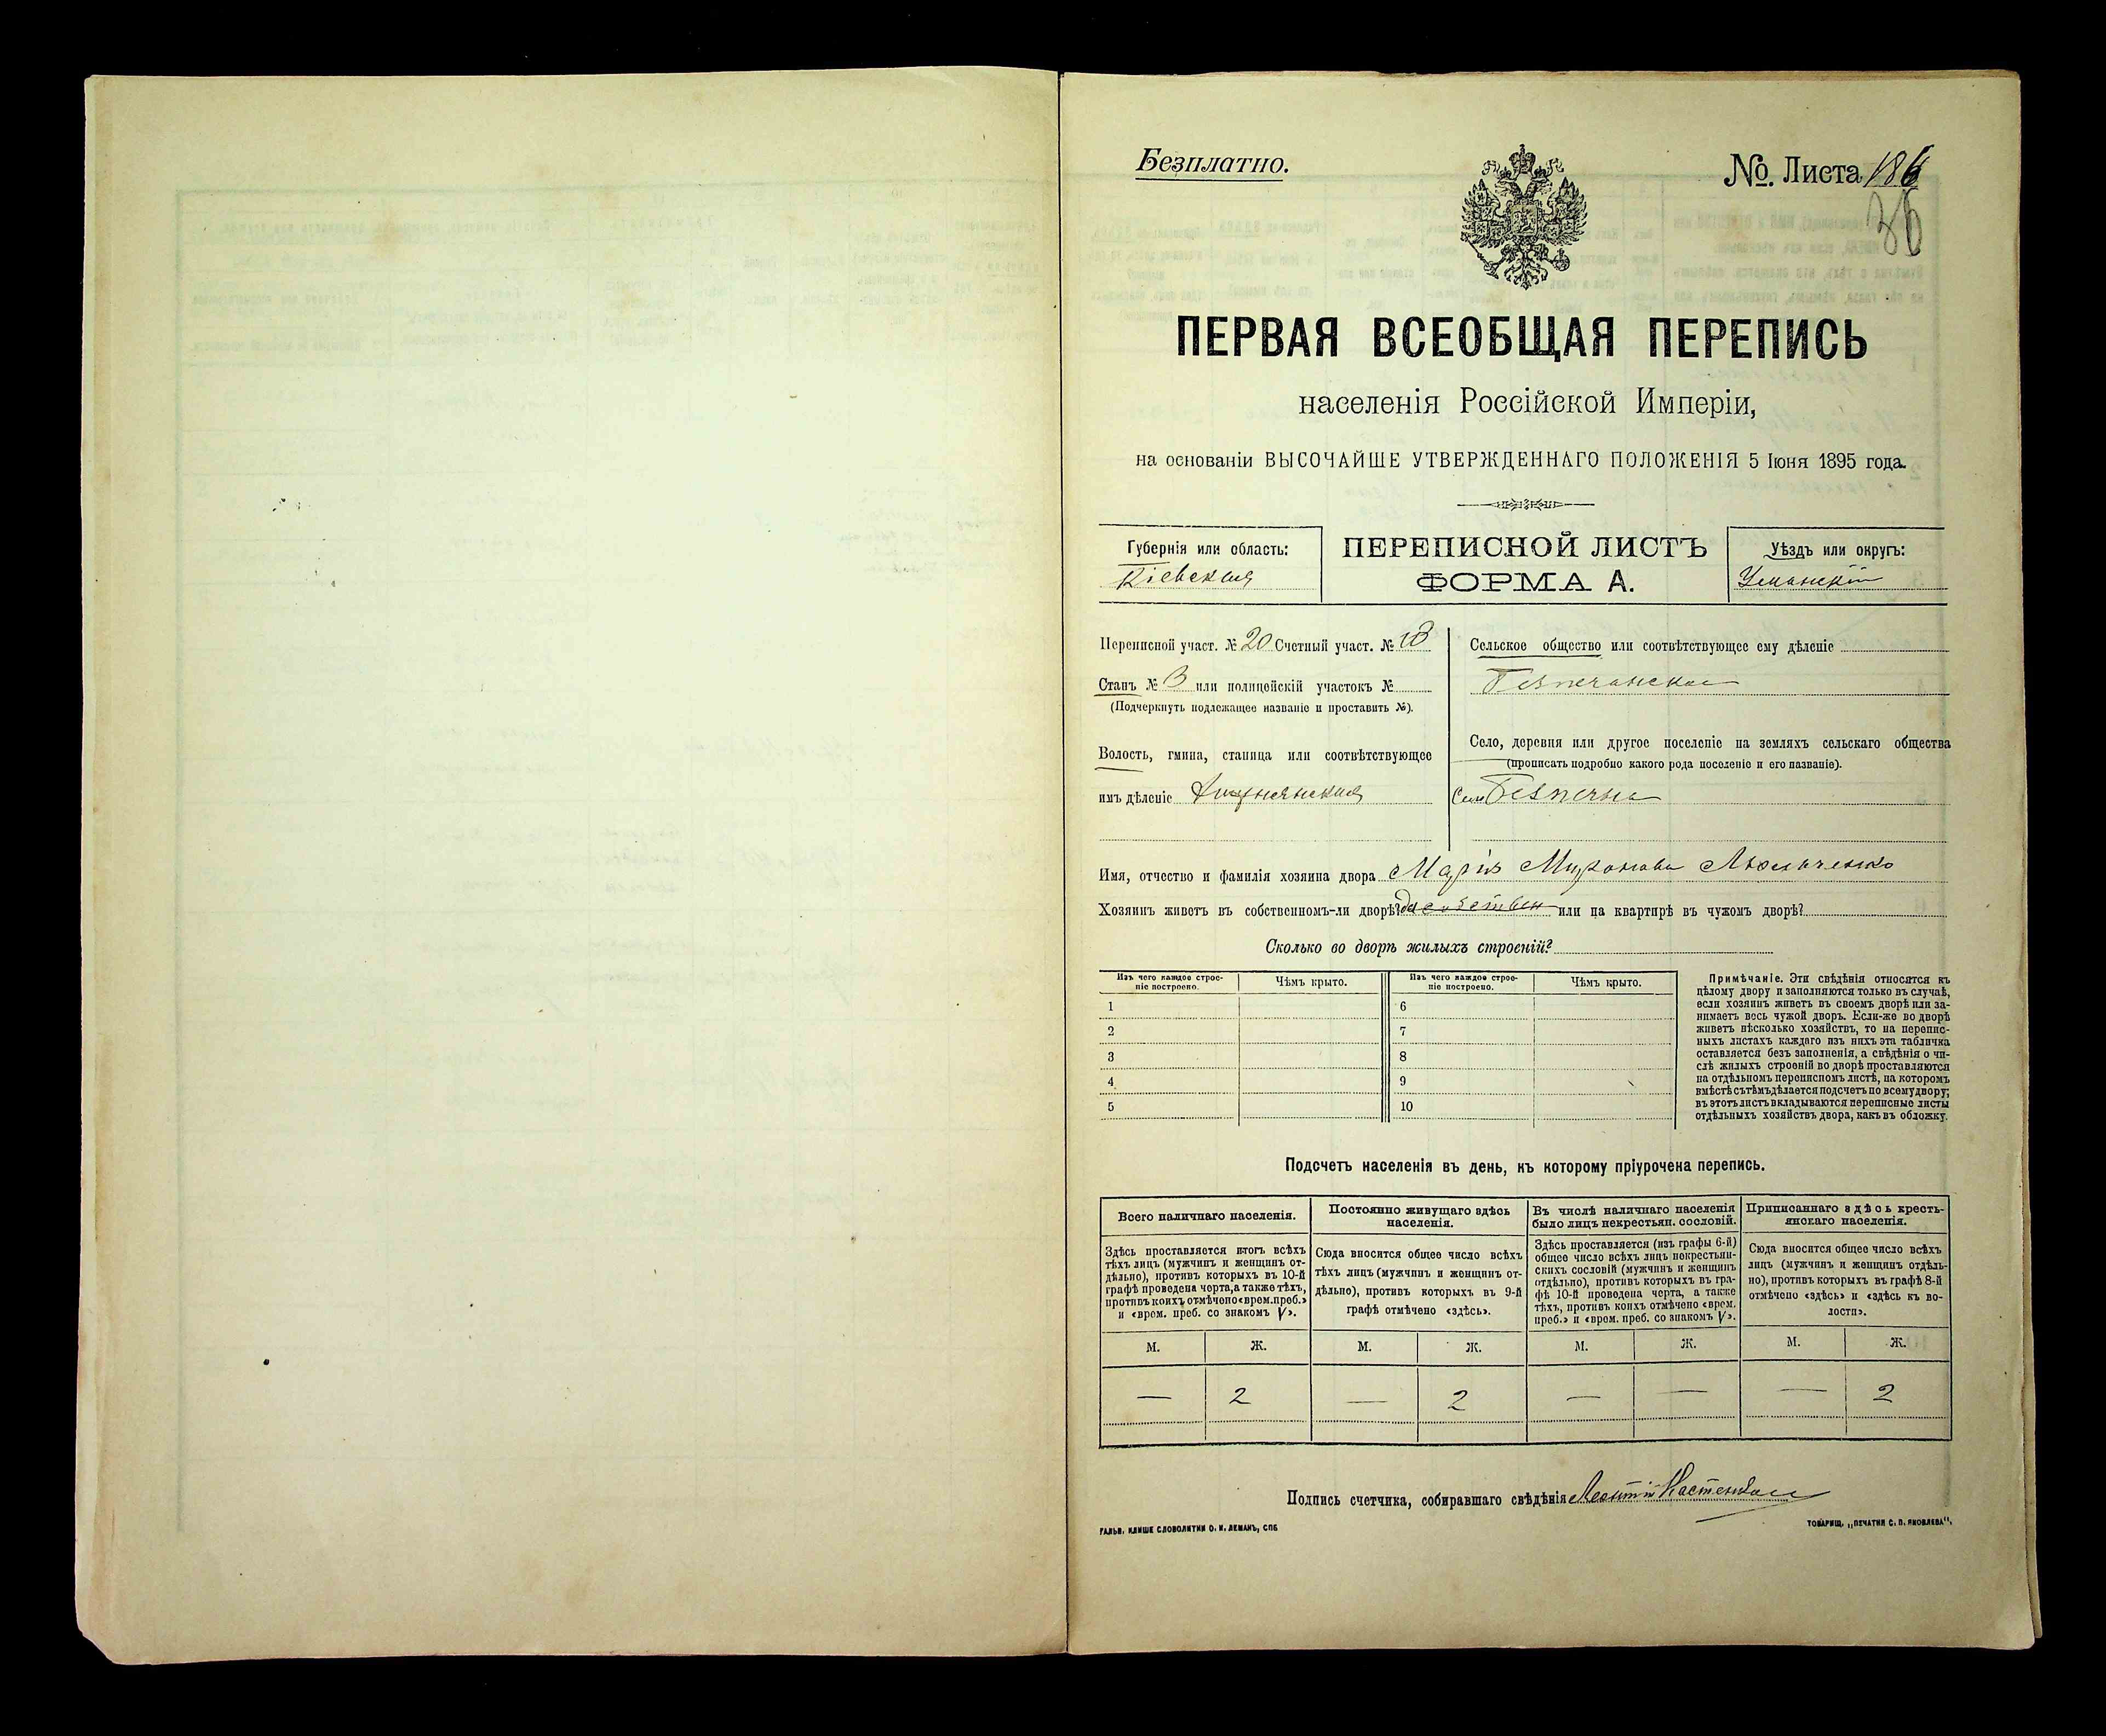 Безплатно.
№. Листа 186
36
ПЕРВАЯ ВСЕОБЩАЯ ПЕРЕПИСЬ
населенія Россійской Имперіи,
на основаніи ВЫСОЧАЙШЕ УТВЕРЖДЕННАГО ПОЛОЖЕНІЯ 5 Іюня 1895 года.
Губернія или область:
Кіевская
ПЕРЕПИСНОЙ ЛИСТЪ
ФОРМА А.
Уѣздъ или округъ:
Уманскій
Переписной участ. № 20 Счетный участ. № 18
Станъ № 3 или полицейскій участокъ №
(Подчеркнуть подлежащее названіе и проставить №).
Волость, гмина, станица или соотвѣтствующее
имъ дѣленіе
Сельское общество или соотвѣтствующее ему дѣленіе
Безпечанское
Село, деревня или другое поселеніе на земляхъ сельскаго общества
(прописать подробно какого рода поселеніе и его названіе).
Село Безпечна
Имя, отчество и фамилія хозяина двора Марія Миронова
Хозяинъ живетъ въ собственномъ-ли дворѣ? да или на квартирѣ въ чужомъ дворѣ?
Сколько во дворѣ жилыхъ строеній?
Изъ чего каждое строе-
ніе построено.
Чѣмъ крыто.
Изъ чего каждое строе-
ніе построено.
Чѣмъ крыто.
1
6
2
7
3
8
4
9
5
10
Примѣчаніе. Эти свѣдѣнія относятся къ
цѣлому двору и заполняются только въ случаѣ,
если хозяинъ живетъ въ своемъ дворѣ или за-
нимаетъ весь чужой дворъ. Если-же во дворѣ
живетъ нѣсколько хозяйствъ, то на перепис-
ныхъ листахъ каждаго изъ нихъ эта табличка
оставляется безъ заполненія, а свѣдѣнія о чи-
слѣ жилыхъ строеній во дворѣ проставляются
на отдѣльномъ переписномъ листѣ, на которомъ
вмѣстѣ съ тѣмъ дѣлается подсчетъ по всему двору;
въ этотъ листъ вкладываются переписные листы
отдѣльныхъ хозяйствъ двора, какъ въ обложку.
Подсчетъ населенія въ день, къ которому пріурочена перепись.
Всего наличнаго населенія.
Постоянно живущаго здѣсь
населенія.
Въ числѣ наличнаго населенія
было лицъ некрестьян. сословій.
Приписаннаго здѣсь кресть-
янскаго населенія.
Здѣсь проставляется итогъ всѣхъ
тѣхъ лицъ (мужчинъ и женщинъ от-
дѣльно), противъ которыхъ въ 10-й
графѣ проведена черта, а также тѣхъ,
противъ коихъ отмѣчено «врем. преб.»
и «врем. преб. со знакомъ V».
Сюда вносится общее число всѣхъ
тѣхъ лицъ (мужчинъ и женщинъ от-
дѣльно), противъ которыхъ въ 9-й
графѣ отмѣчено «здѣсь».
Здѣсь проставляется (изъ графы 6-й)
общее число всѣхъ лицъ некрестьян-
скихъ сословій (мужчинъ и женщинъ
отдѣльно), противъ которыхъ въ гра-
фѣ 10-й проведена черта, а также
тѣхъ, противъ коихъ отмѣчено «врем.
преб.» и «врем. преб. со знакомъ V».
Сюда вносится общее число всѣхъ
лицъ (мужчинъ и женщинъ отдѣль-
но), противъ которыхъ въ графѣ 8-й
отмѣчено «здѣсь» и «здѣсь къ во-
лости».
М. Ж. М. Ж. М. Ж. М. Ж.
— 2 — 2 — — — 2
Подпись счетчика, собиравшаго свѣдѣнія Леонтій
ГАЛЬВ. КЛИШЕ СЛОВОЛИТНИ О. И. ЛЕМАНЪ, СПБ
ТОВАРИЩ. „ПЕЧАТНЯ С. П. ЯКОВЛЕВА".